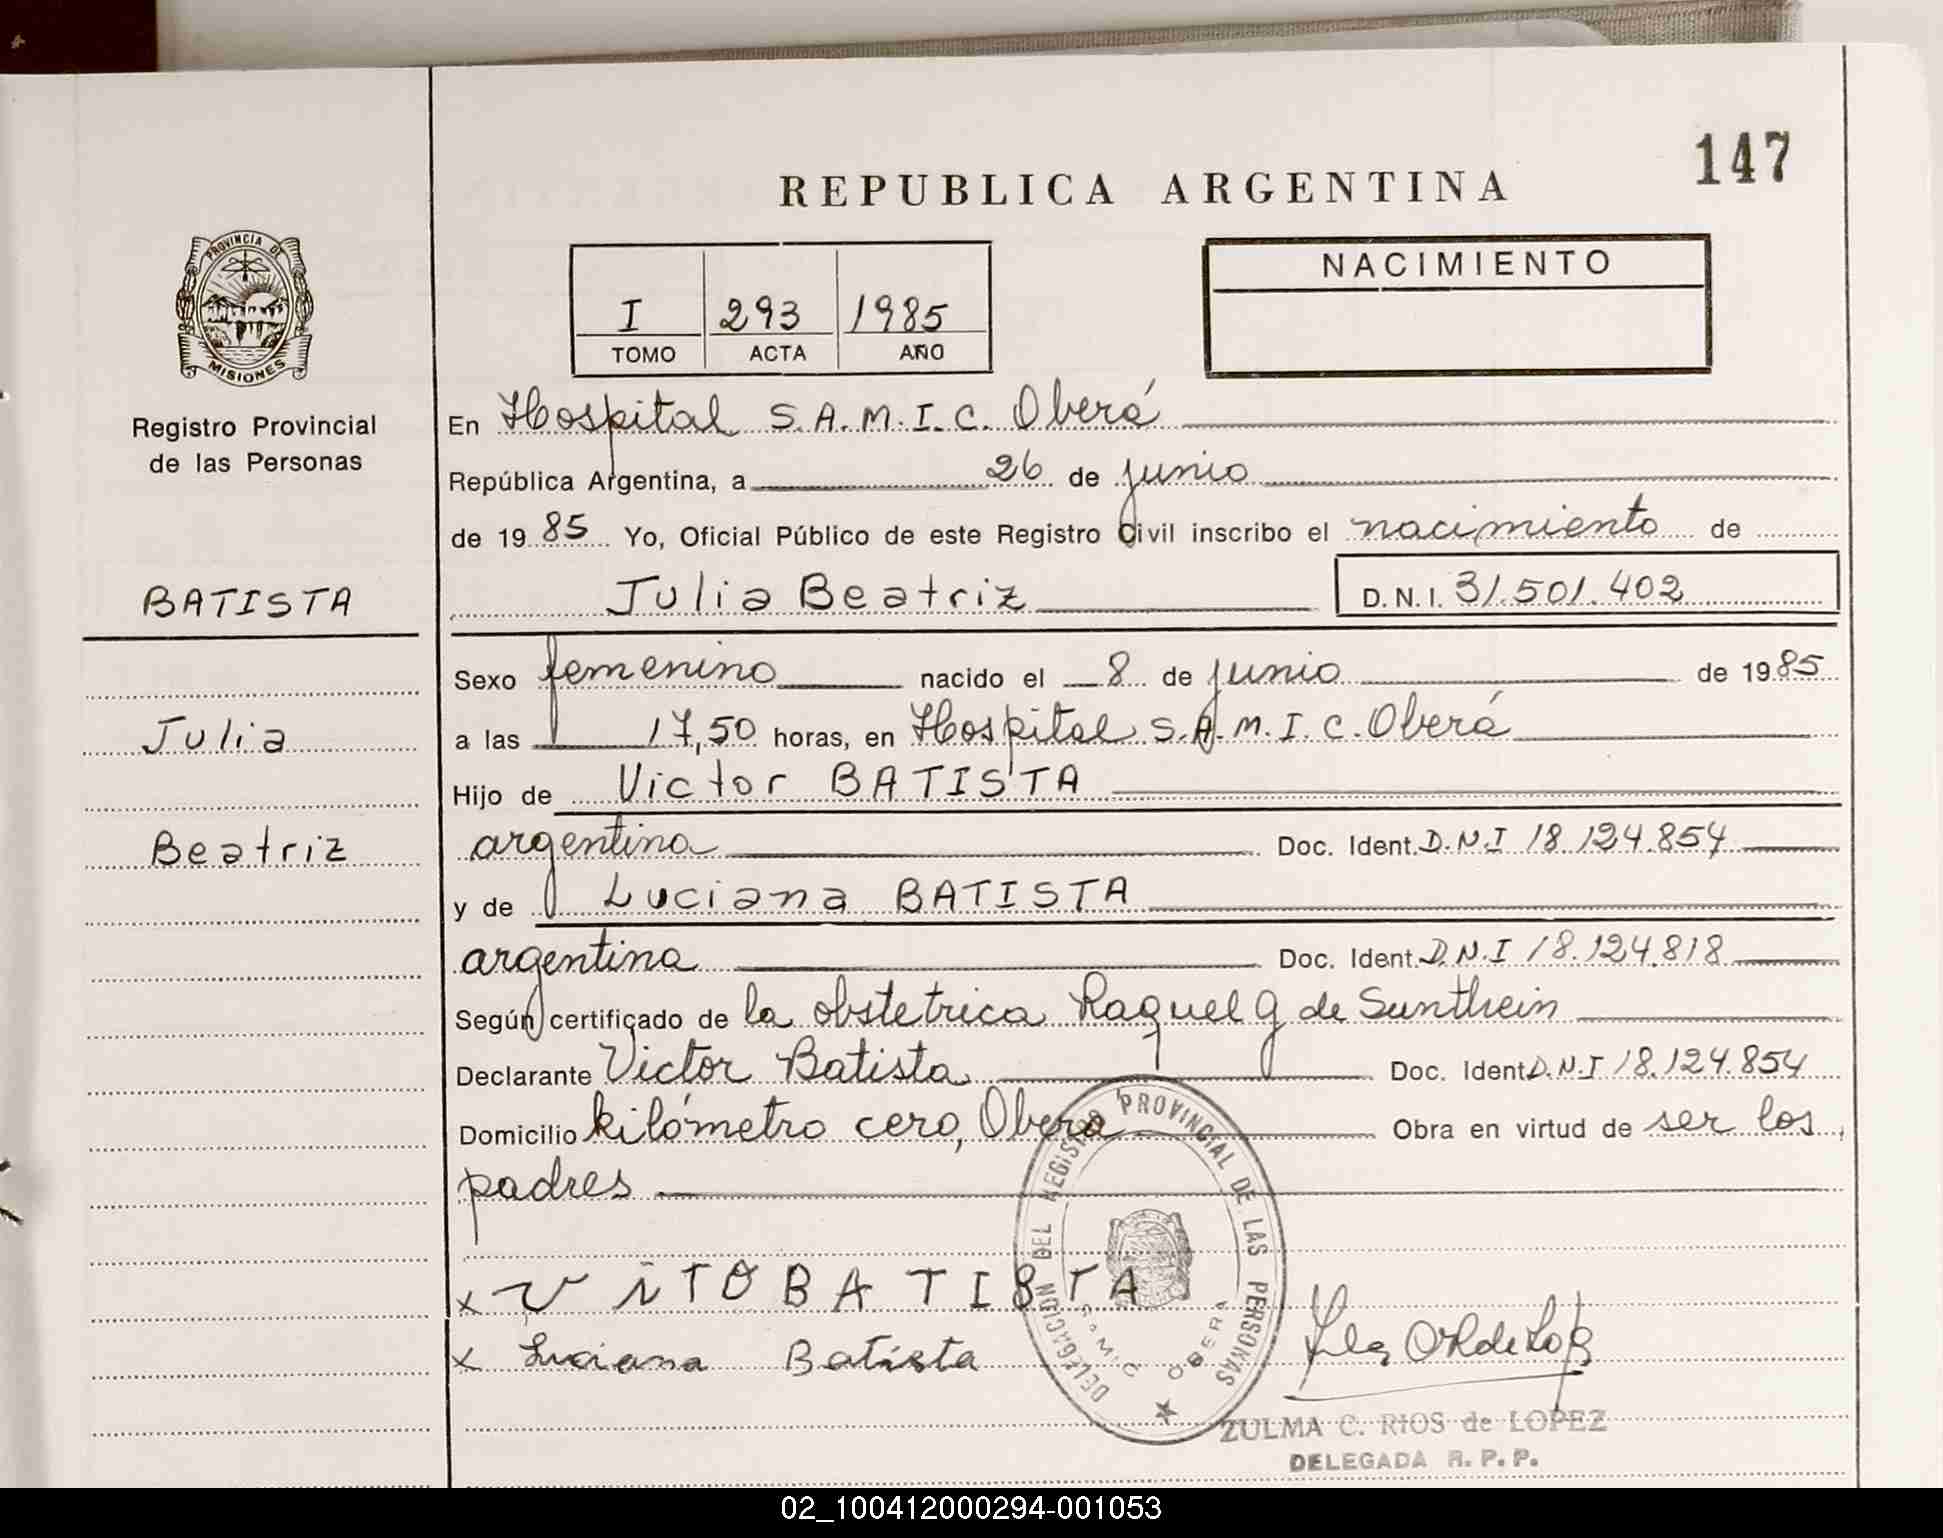 147
REPUBLICA ARGENTINA
PROVINCIA DE
MISIONES
Registro Provincial
de las Personas
I 293 1985
TOMO ACTA AÑO
NACIMIENTO
En Hospital S.A.M.I.C. Oberá
República Argentina, a 26 de junio
de 1985 Yo, Oficial Público de este Registro Civil inscribo el nacimiento de
BATISTA
Julia Beatriz D.N.I. 31.501.402
Sexo femenino nacido el 8 de junio de 1985
Julia
a las 17,50 horas, en Hospital S.A.M.I.C. Oberá
Hijo de Victor BATISTA
Beatriz
argentina Doc. Ident. D.N.I 18.124.854
y de Luciana BATISTA
argentina Doc. Ident. D.N.I 18.124.818
Según certificado de la obstetrica Raquel G de Sunthein
Declarante Victor Batista Doc. Ident. D.N.I 18.124.854
Domicilio kilómetro cero, Obera Obra en virtud de ser los
padres
x ViTOBATISTA
x Luciana Batista
DELEGACION DEL REGISTRO PROVINCIAL DE LAS PERSONAS
SAMIC OBERA
ZULMA C. RIOS de LOPEZ
DELEGADA R.P.P.
02_100412000294-001053